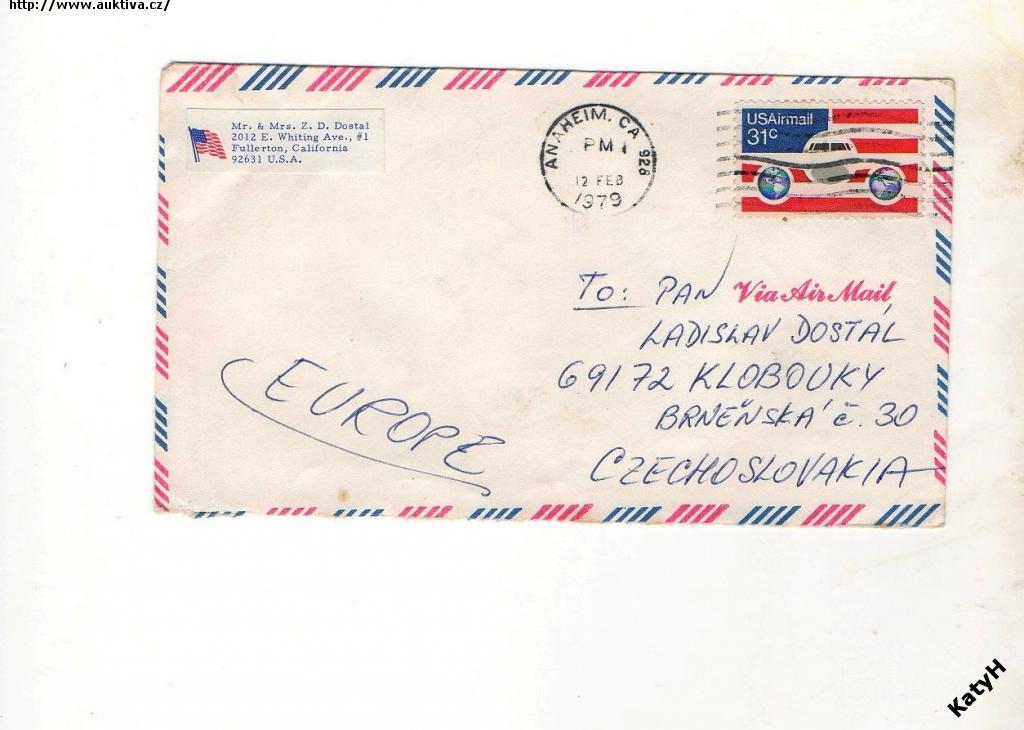 http://www.auktiva.cz/
Mr. & Mrs. Z. D. Dostal
2012 E. Whiting Ave., #1
Fullerton, California
92631 U.S.A.
ANAHEIM, CA 928
PM
12 FEB
1979
USAirmail
31c
To: PAN
Via Air Mail
LADISLAV DOSTÁL
69172 KLOBOUKY
BRNEŇSKÁ č. 30
CZECHOSLOVAKIA
EUROPE
KatyH